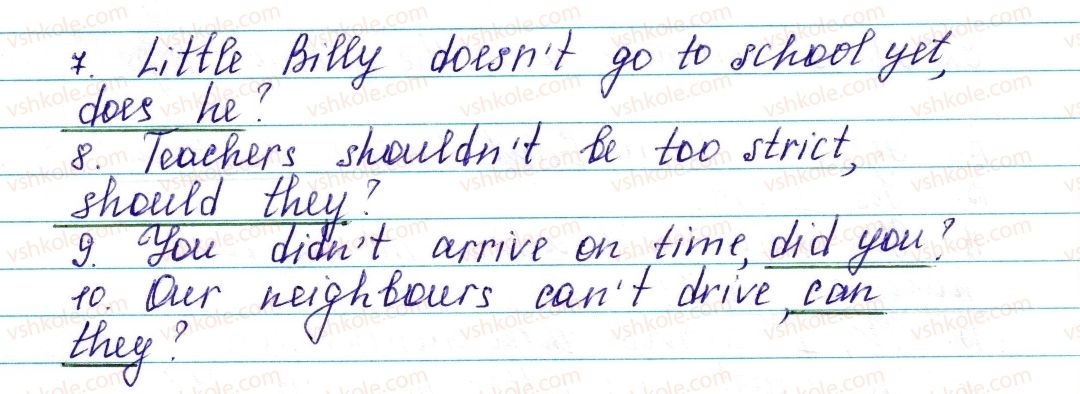 7. Little Billy doesn't go to school yet,
does he?
8. Teachers shouldn't be too strict,
should they?
9. You didn't arrive on time, did you?
10. Our neighbours can't drive, can
they?